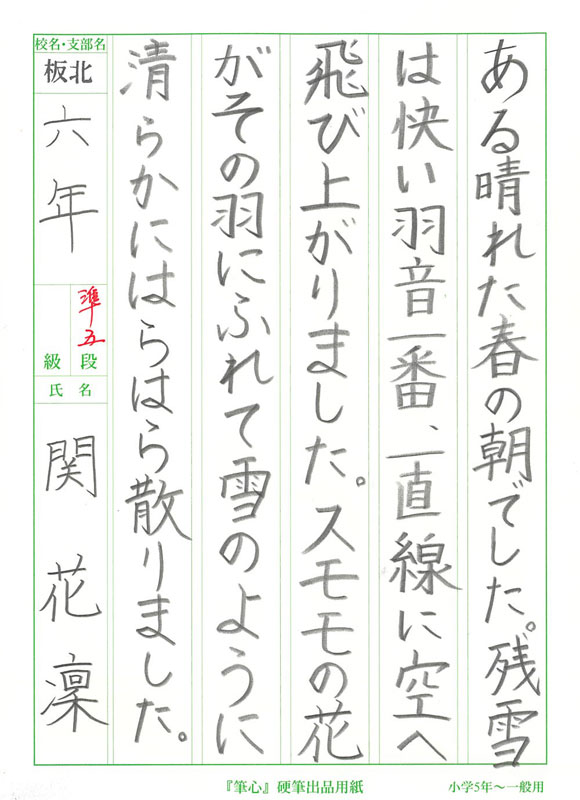 ある晴れた春の朝でした。残雪
は快い羽音一番、一直線に空へ
飛び上がりました。スモモの花
がその羽にふれて雪のように
清らかにはらはら散りました。
校名・支部名
板北
六年
準五
級 段
氏名
関 花凜
『筆心』硬筆出品用紙
小学5年〜一般用